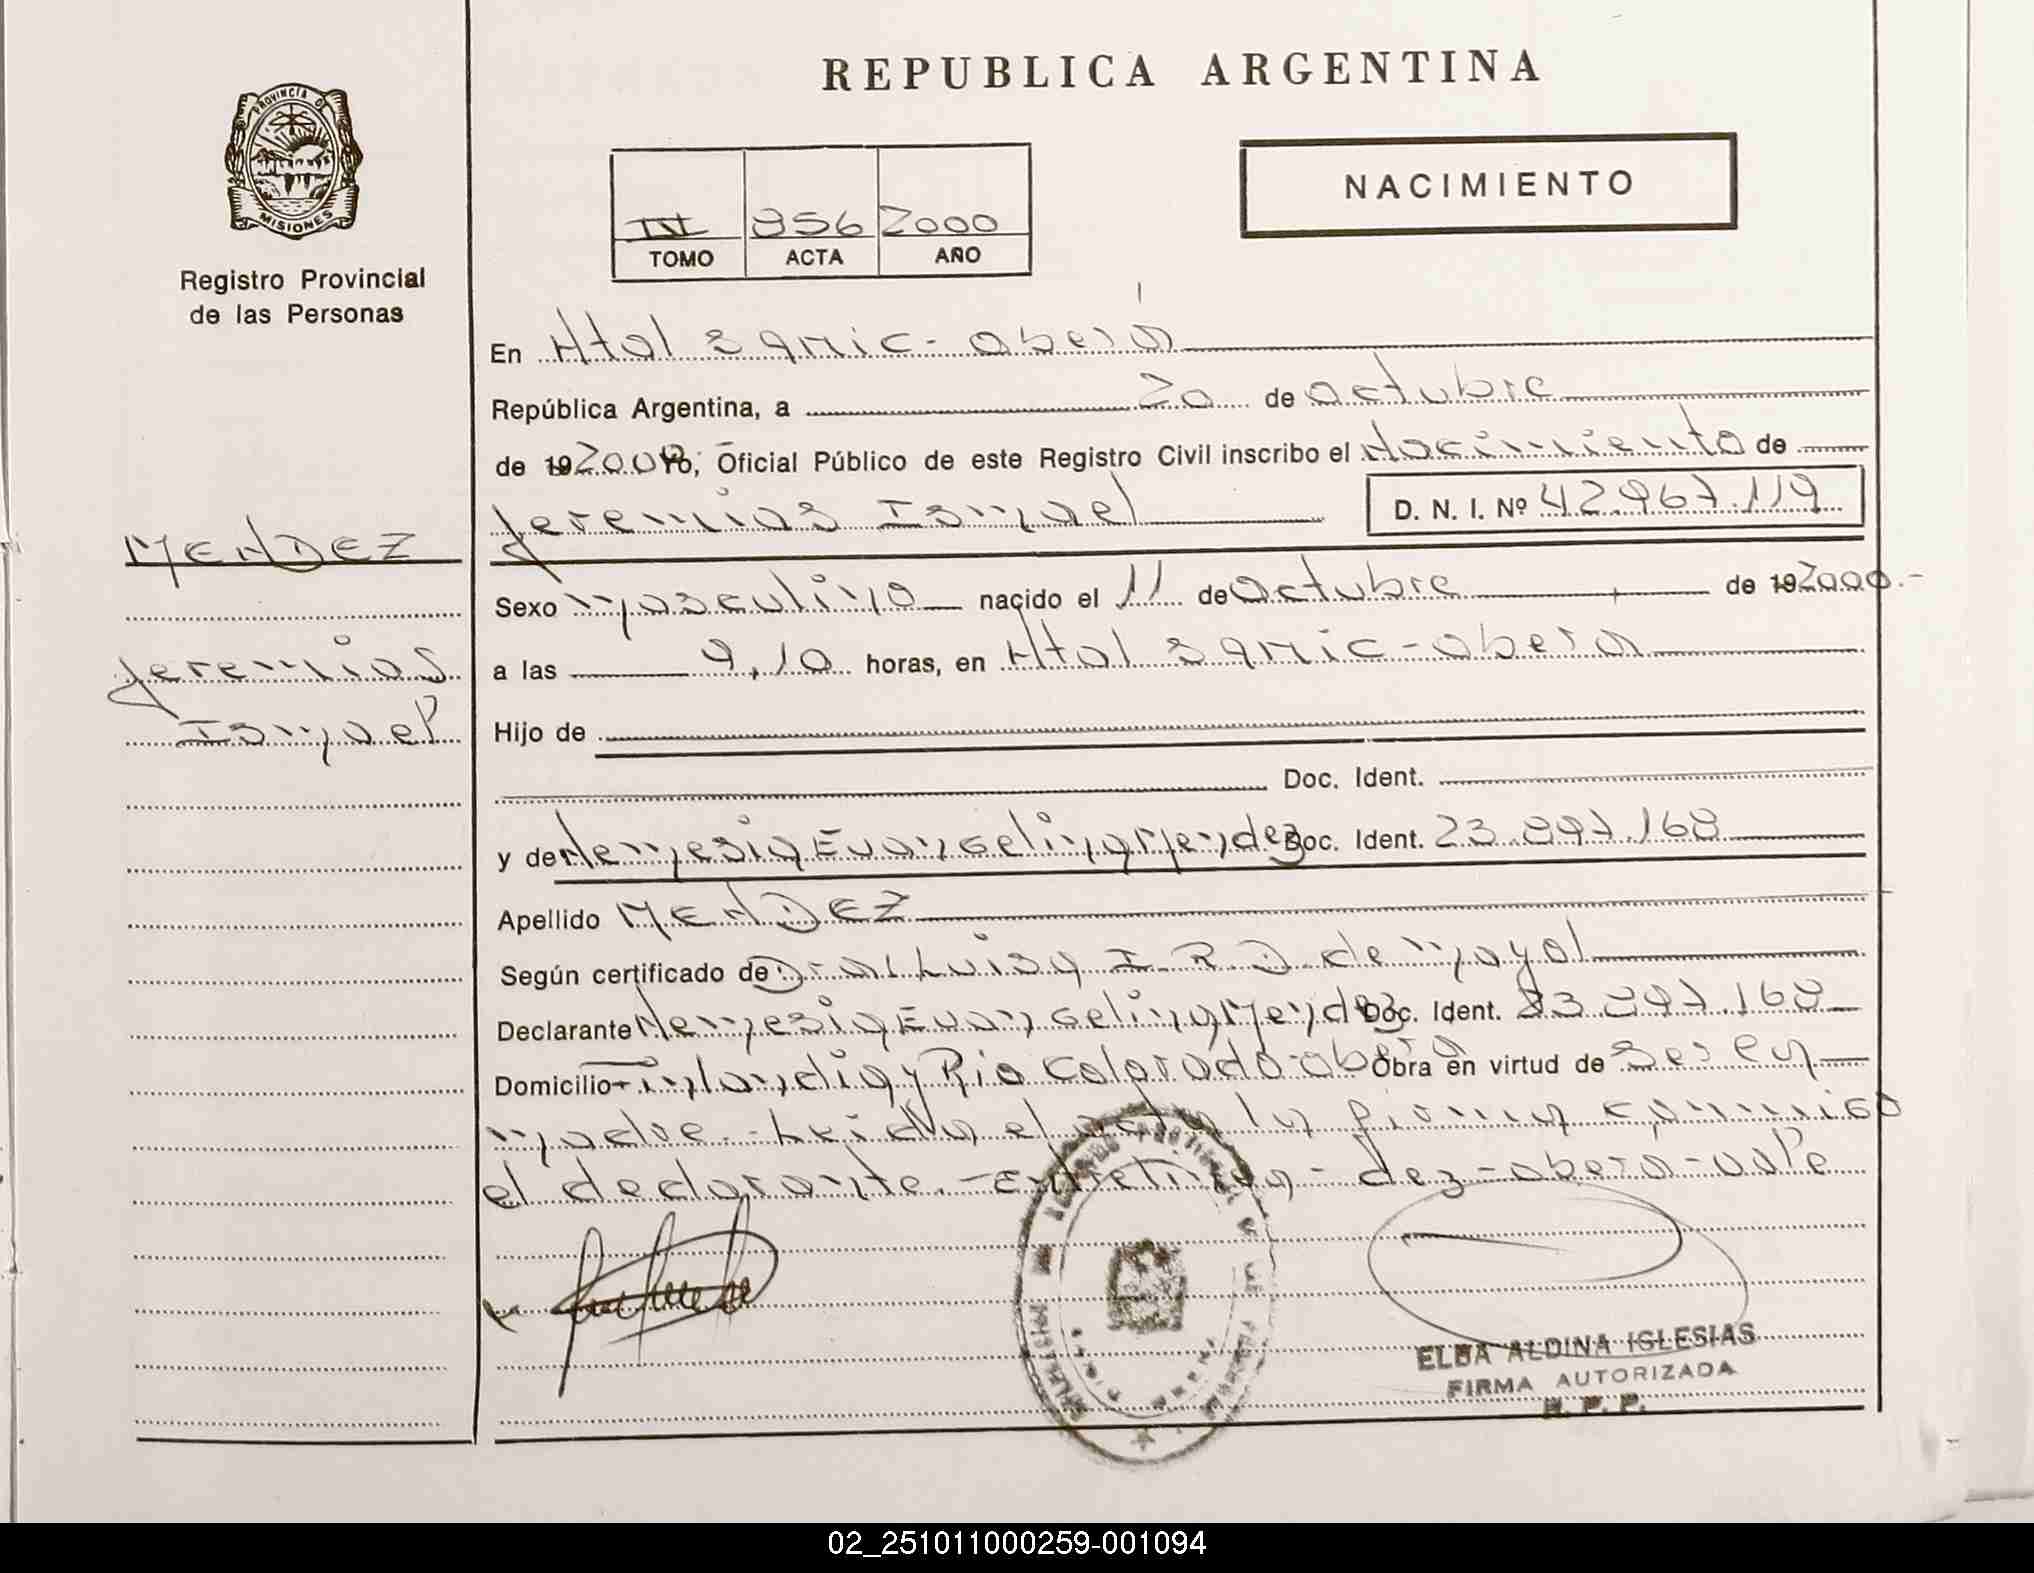 REPUBLICA ARGENTINA
PROVINCIA D
MISIONES
Registro Provincial
de las Personas
NACIMIENTO
956 2000
TOMO ACTA AÑO
En Htal Samic - Oberá
República Argentina, a 20 de Octubre
de 19 2000 Yo, Oficial Público de este Registro Civil inscribo el Nacimiento de
Jeremias Ismael D. N. I. Nº 42.967.119
MENDEZ
Jeremias
Ismael
Sexo Masculino nacido el 11 de Octubre de 19 2000.-
a las 9,10 horas, en Htal Samic - Obera
Hijo de
Doc. Ident.
y de Nemesia Evangelina Mendez Doc. Ident. 23.897.168
Apellido MENDEZ
Según certificado de Dra. Luisa I. R. D. de Mayol
Declarante Nemesia Evangelina Mendez Doc. Ident. 23.897.168
Domicilio Finlandia y Rio Colorado - Oberá Obra en virtud de Ser la
madre. - Leida el acta la firma conmigo
el declarante. - Entrelinea - dez - oberá - vale
ELBA ALDINA IGLESIAS
FIRMA AUTORIZADA
R. P. P.
02_251011000259-001094